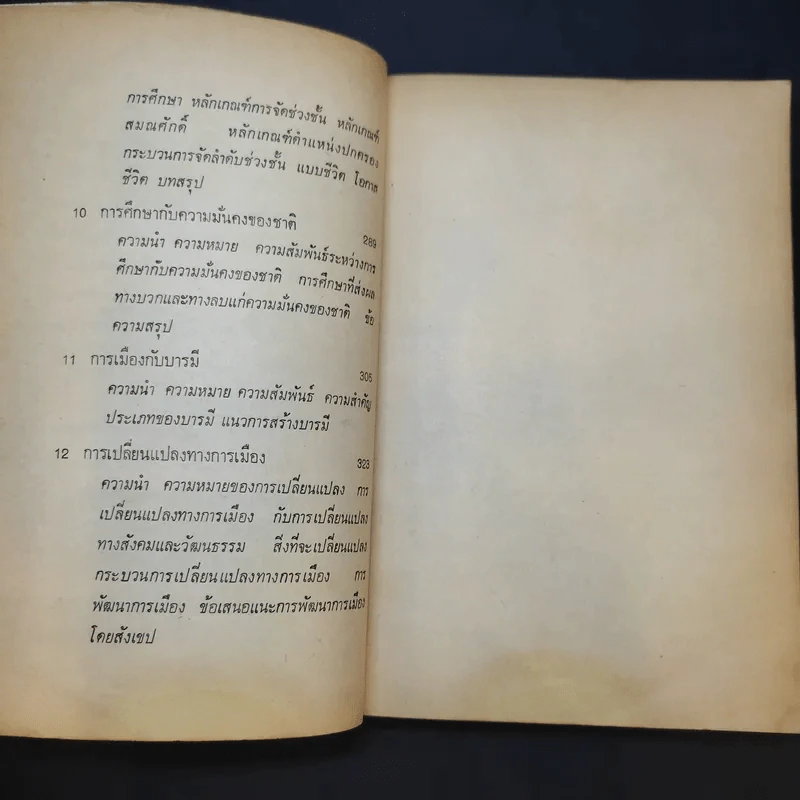 การศึกษา หลักเกณฑ์การจัดช่วงชั้น หลักเกณฑ์
สมณศักดิ์ หลักเกณฑ์ตำแหน่งปกครอง
กระบวนการจัดลำดับช่วงชั้น แบบชีวิต โอกาส
ชีวิต บทสรุป
10 การศึกษากับความมั่นคงของชาติ 289
ความนำ ความหมาย ความสัมพันธ์ระหว่างการ
ศึกษากับความมั่นคงของชาติ การศึกษาที่ส่งผล
ทางบวกและทางลบแก่ความมั่นคงของชาติ ข้อ
ความสรุป
11 การเมืองกับบารมี 305
ความนำ ความหมาย ความสัมพันธ์ ความสำคัญ
ประเภทของบารมี แนวการสร้างบารมี
12 การเปลี่ยนแปลงทางการเมือง 323
ความนำ ความหมายของการเปลี่ยนแปลง การ
เปลี่ยนแปลงทางการเมือง กับการเปลี่ยนแปลง
ทางสังคมและวัฒนธรรม สิ่งที่จะเปลี่ยนแปลง
กระบวนการเปลี่ยนแปลงทางการเมือง การ
พัฒนาการเมือง ข้อเสนอแนะการพัฒนาการเมือง
โดยสังเขป